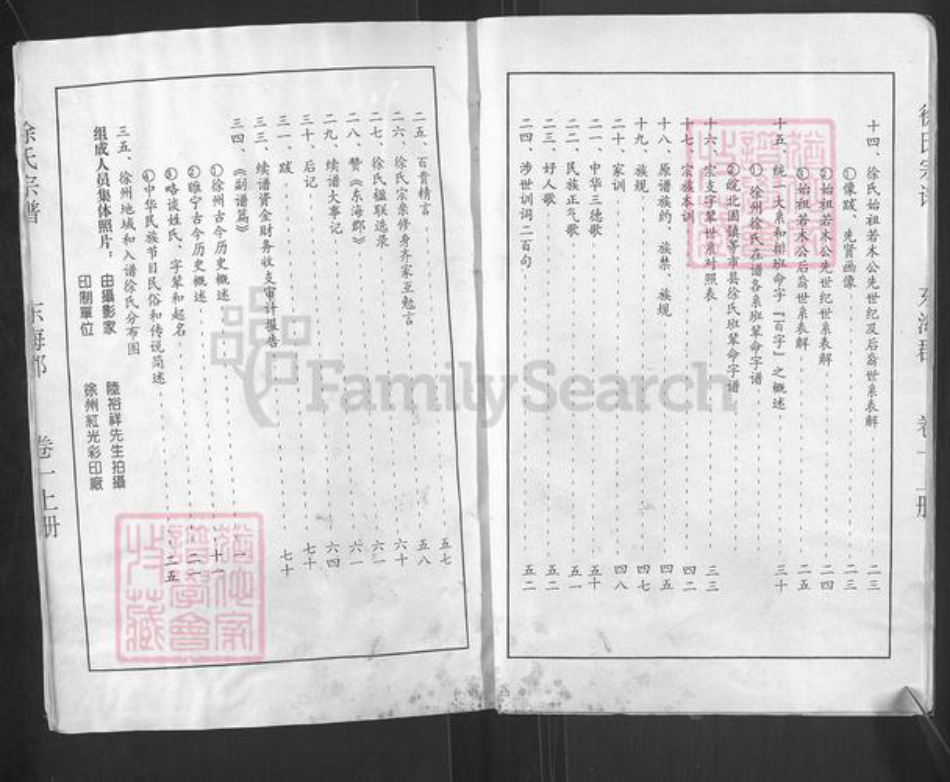 十四、徐氏始祖若木公先世纪及后裔世系表解 二三
①像跋、先贤画像 二三
②始祖若木公先世纪世系表解 二四
③始祖若木公后裔世系表解 二五
十五、统一大系和排班命字『百字』之概述 三十
①徐州徐氏在谱各系辈命字谱
②皖北固镇等市县徐氏班辈命字谱
十六、宗支字辈世系对照表 三三
十七、宗族本训 四二
十八、原谱族约、族禁、族规 四五
十九、族规 四七
二十、家训 四八
二一、中华三德歌 五十
二二、民族正气歌 五一
二三、好人歌 五二
二四、涉世训词二百句 五二
徐氏宗谱 东海郡 卷一上册
二五、百贵精言 五七
二六、徐氏宗亲修身齐家互勉言 五八
二七、徐氏楹联选录 六十
二八、赞《东海郡》 六一
二九、续谱大事记 六一
三十、后记 六四
三一、跋 七十
三三、续谱资金财务收支审计报告 七十
三四、《副谱篇》 一
①徐州古今历史概述 十一
②睢宁古今历史概述 二一
③略谈姓氏、字辈和起名 二五
④中华民族节目民俗和传说简述
三五、徐州地域和入谱徐氏分布图
组成人员集体照片，由攝影家 陸裕祥先生拍攝
印制單位 徐州紅光彩印廠
徐氏宗谱 东海郡 卷一上册
FamilySearch